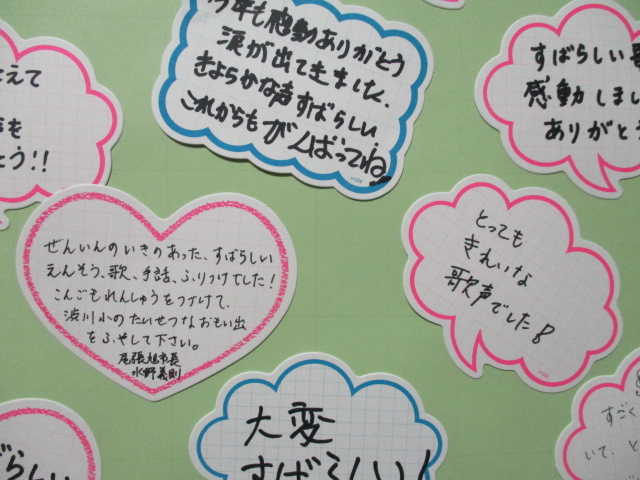 今年も感動ありがとう
涙が出てきました。
きよらかな声すばらしい
これからもがんばってね!!
すばらしい
感動しまし
ありがと
えて
を
とう!!
ぜんいんのいきのあった、すばらしい
えんそう、歌、手話、ふりつけでした!
こんごもれんしゅうをつづけて、
渋川小のたいせつなおもい出
をふやして下さい。
尾張旭市長
水野義則
とっても
きれいな
歌声でした!
大変
すばらしい!
ばらしい
すごく
いて、と